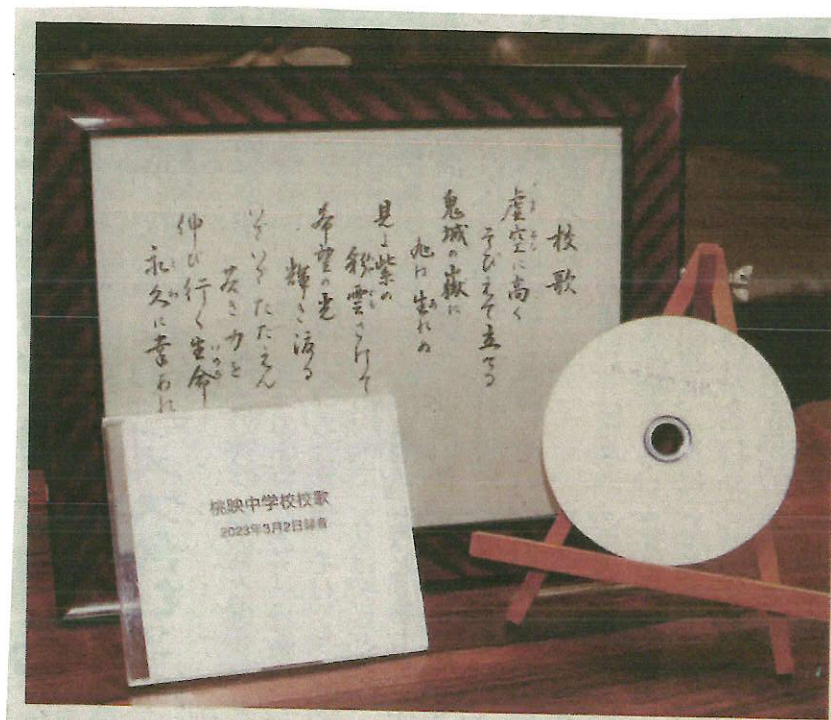 校歌
虚空に高く
そびえて立てる
鬼城の嶽に
旭は生れぬ
見よ紫の
彩雲さけて
希望の光
輝き渡る
いざいざたたえん
若き力を
伸び行く生命
永久に幸あれ
桃映中学校校歌
2023年3月2日録音